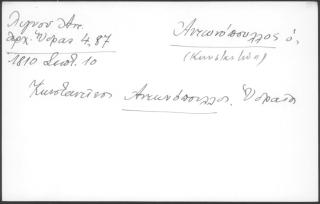 Λιγνού Απ.
Αρχ. Ύδρας 4, 87
1810 Σεπτ. 10
Αντωνόπουλλος ό,
(Κωνσταντίνος)
Κωνσταντίνος Αντωνόπουλλος, Υδραίος